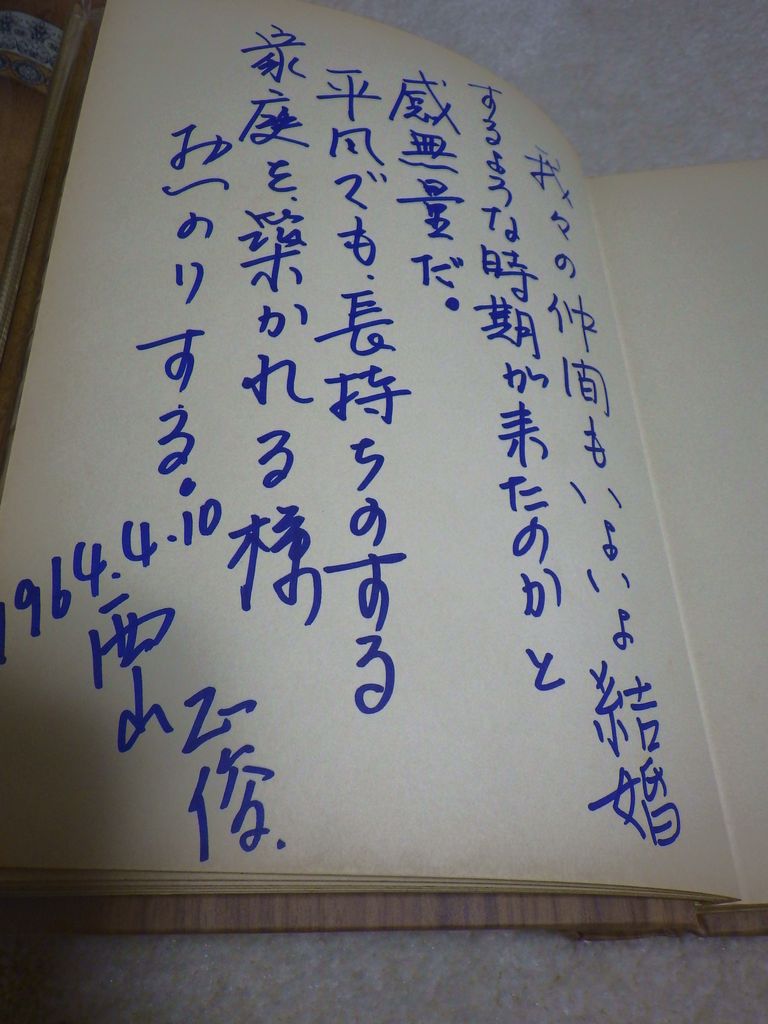 我々の仲間もいよいよ結婚
するような時期が来たのかと
感無量だ。
平凡でも、長持ちのする
家庭を築かれる様
おいのりする。
1964.4.10
西山 正俊.